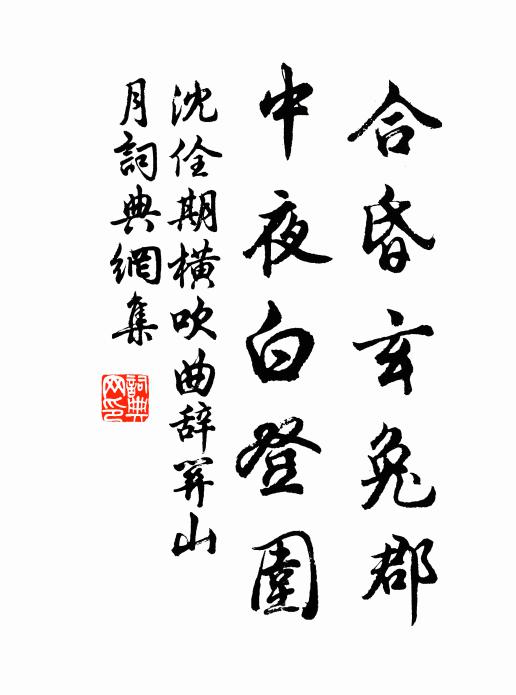 合昏玄兔郡
中夜白登圍
沈佺期橫吹曲辞關山
月詞典網集
詞典网印